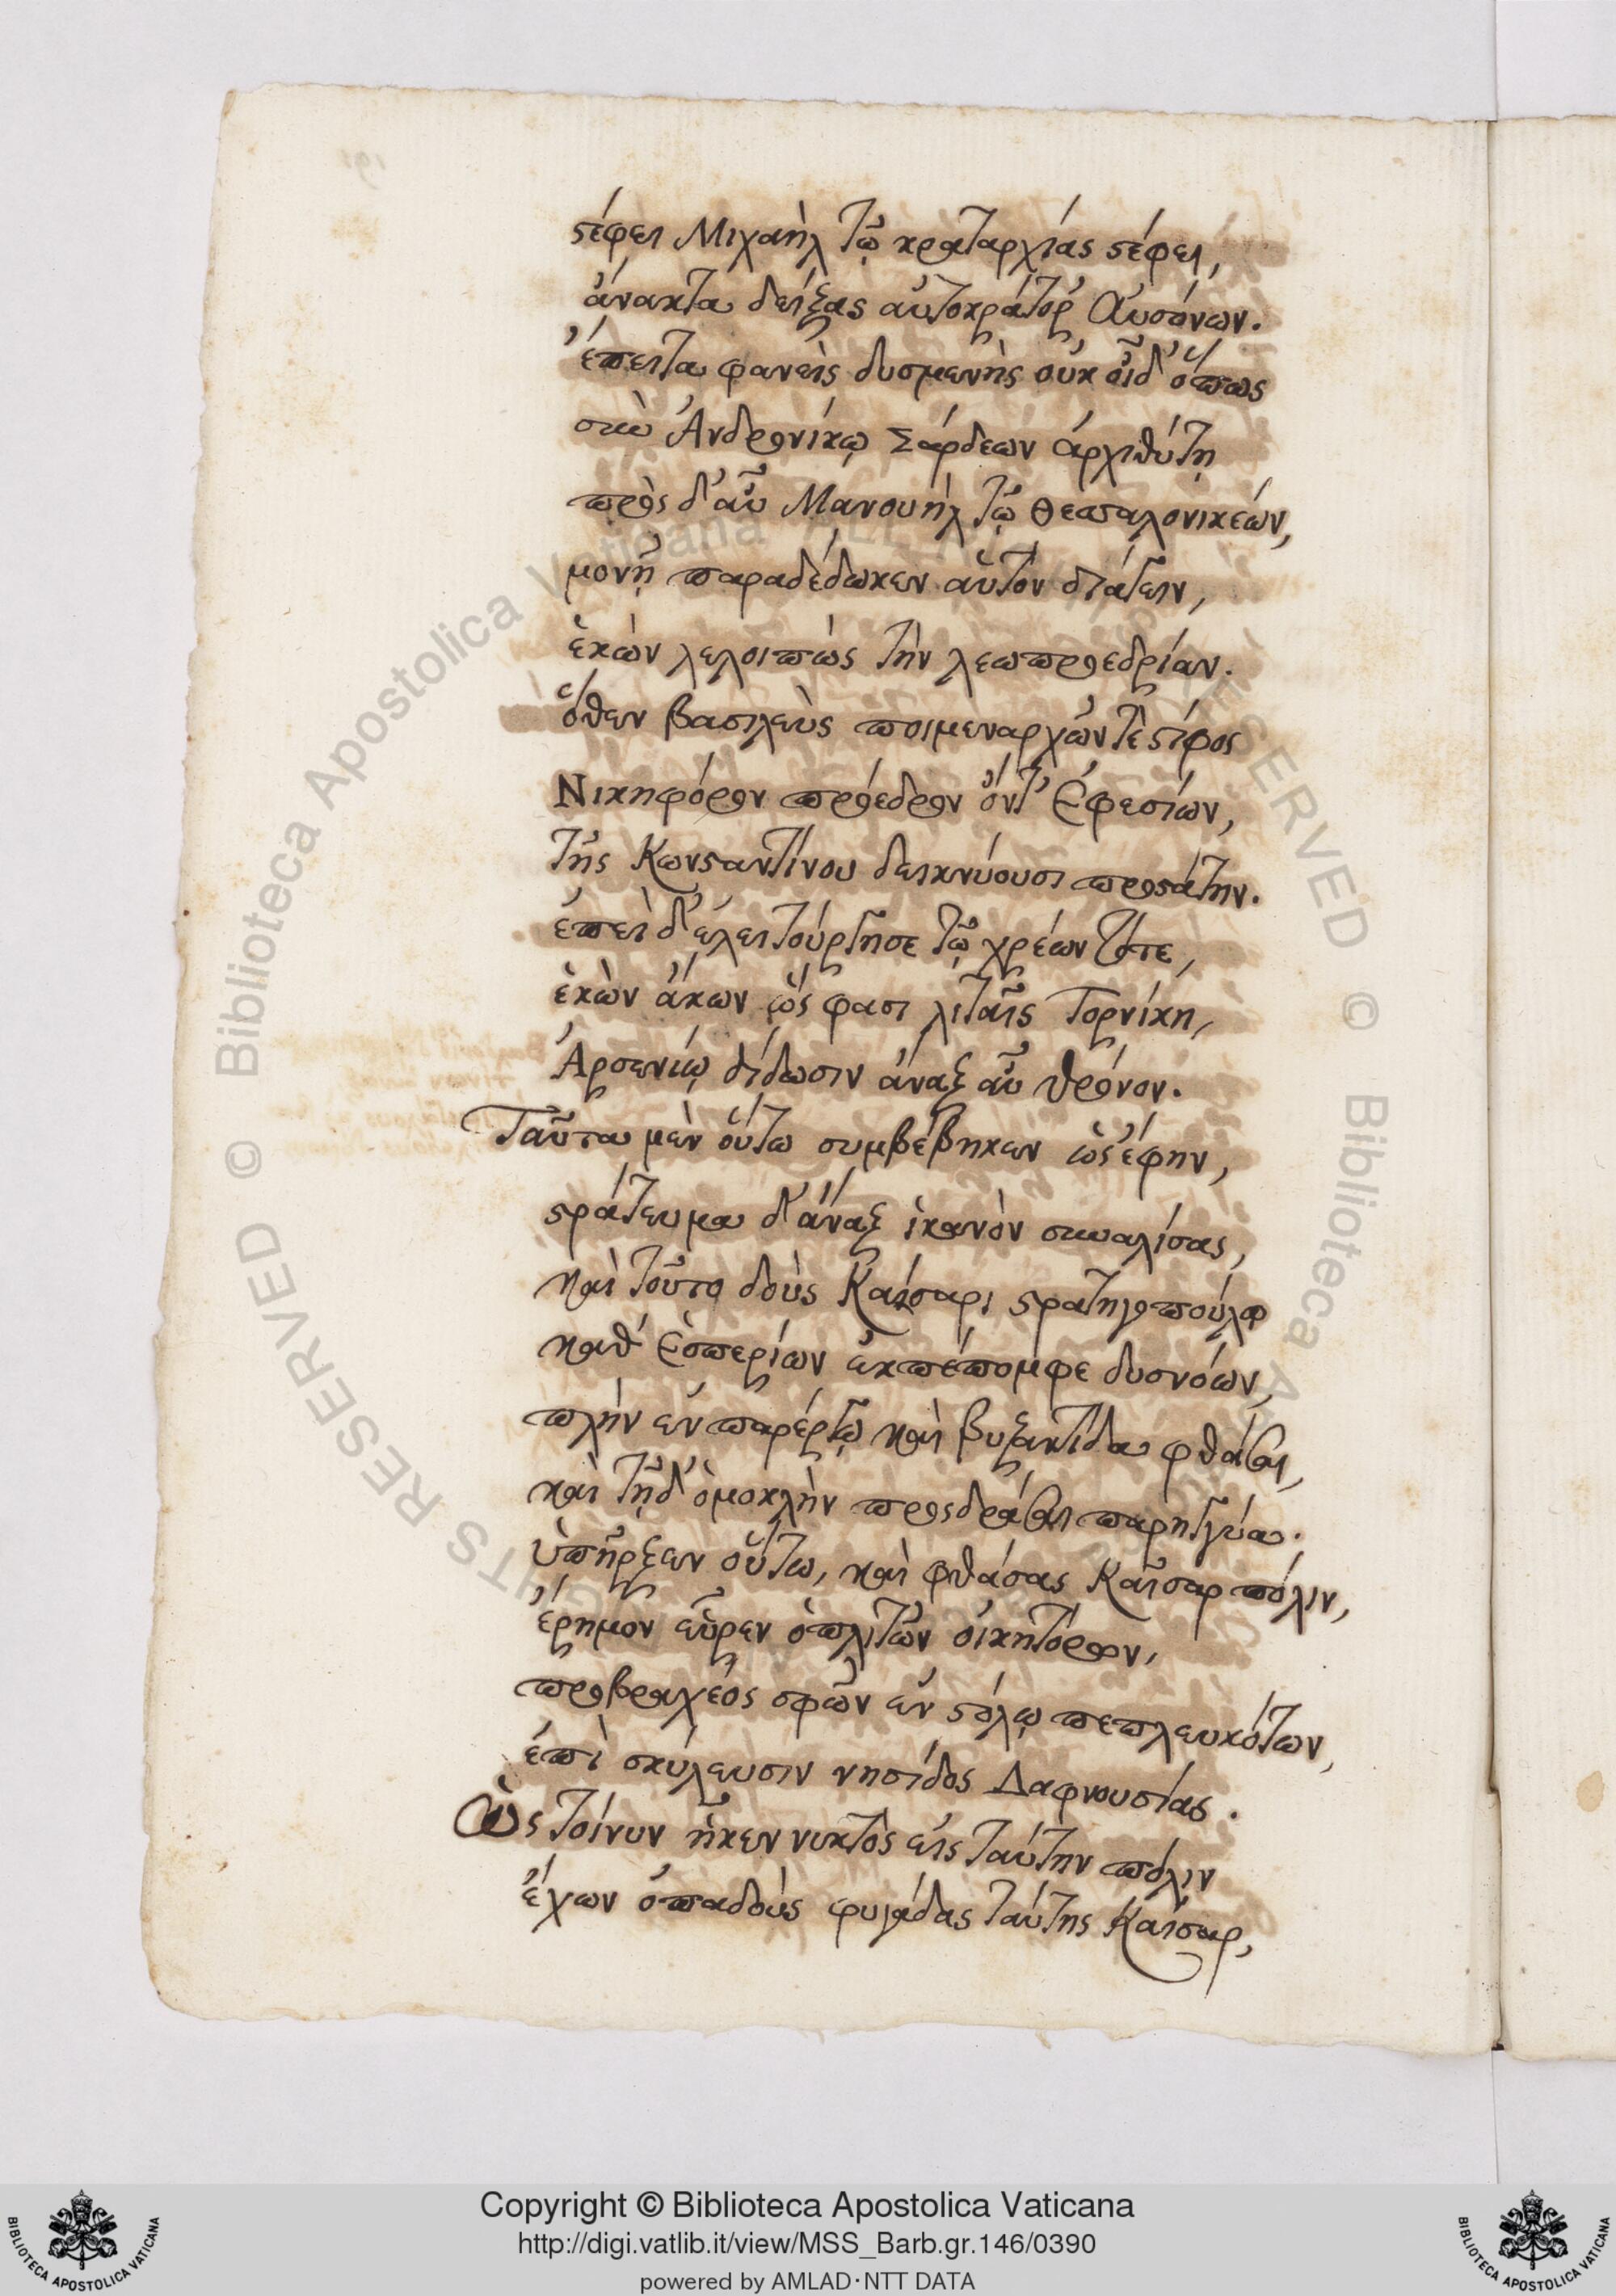 στέφει Μιχαὴλ τῷ κραταρχίας στέφει,
ἄνακτα δείξας αὐτοκράτορ' Αὐσόνων.
ἔπειτα φανεὶς δυσμενὴς οὐκ οἶδ' ὅπως
σὺν Ἀνδρονίκῳ Σάρδεων ἀρχιθύτῃ
πρὸς δ' αὖ Μανουὴλ τῷ Θεσσαλονικέων,
μονῇ παραδέδωκεν αὑτὸν διάγειν,
ἑκὼν λελοιπὼς τὴν λεωπροεδρίαν.
ὅθεν βασιλεὺς ποιμεναρχῶν τὲ στίφος
Νικηφόρον πρόεδρον ὄντ' Ἐφεσίων,
τῆς Κωνσταντίνου δεικνύουσι προστάτην.
ἐπεὶ δ' ἐλειτούργησε τῷ χρέων
ἑκὼν ἄκων ὥς φασι λιταῖς Τορνίκη,
Ἀρσενίῳ δίδωσιν ἄναξ αὖ θρόνον.
Ταῦτα μὲν οὕτω συμβέβηκεν ὡς ἔφην,
στράτευμα δ' ἄναξ ἱκανὸν συναλίσας,
καὶ τοῦτο δοὺς Καίσαρι στρατηγοπούλῳ
καθ' Ἑσπερίων ἐκπέπομφε δυσνόων,
πλὴν ἐν παρέργῳ καὶ βυζαντίδα φθάσαι,
καὶ τῇδ' ὁμοκλὴν προσδράσαι παρηγγύα.
ὑπῆρξεν οὕτω, καὶ φθάσας Καῖσαρ πόλιν,
ἔρημον εὗρεν ὁπλιτῶν οἰκητόρων,
προβραχέος σφῶν ἐν στόλῳ πεπλευκότων,
ἐπὶ σκύλευσιν νησίδος Δαφνουσίας.
Ὡς τοίνυν ἧκεν νυκτὸς εἰς ταύτην πόλιν
ἔχων ὀπαδοὺς φυγάδας ταύτης Καῖσαρ,
Copyright © Biblioteca Apostolica Vaticana
http://digi.vatlib.it/view/MSS_Barb.gr.146/0390
powered by AMLAD·NTT DATA